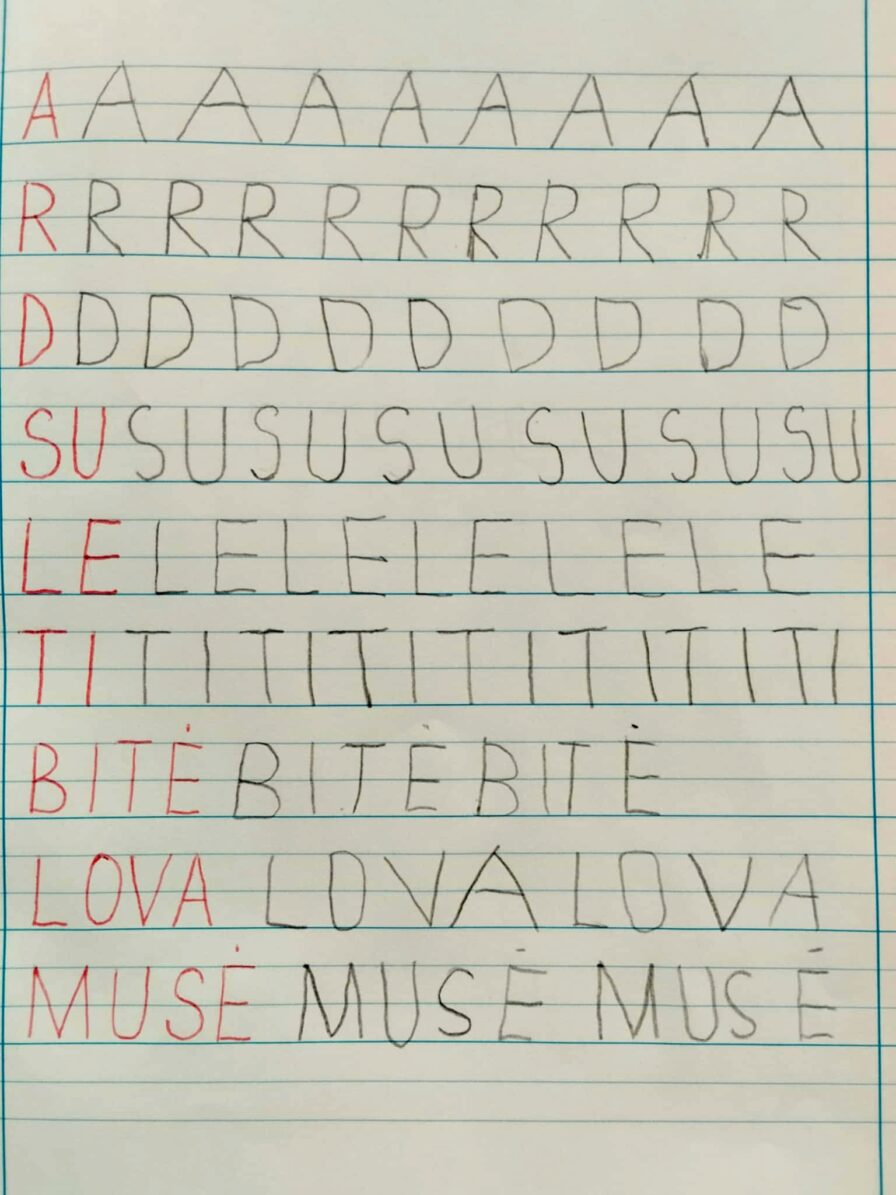 A A A A A A A A A
R R R R R R R R R R R
D D D D D D D D D D
SU SU SU SU SU SU SU
LE LE LE LE LE LE
TI TI TI TI TI TI TI TI
BITĖ BITĖ BITĖ
LOVA LOVA LOVA
MUSĖ MUSĖ MUSĖ